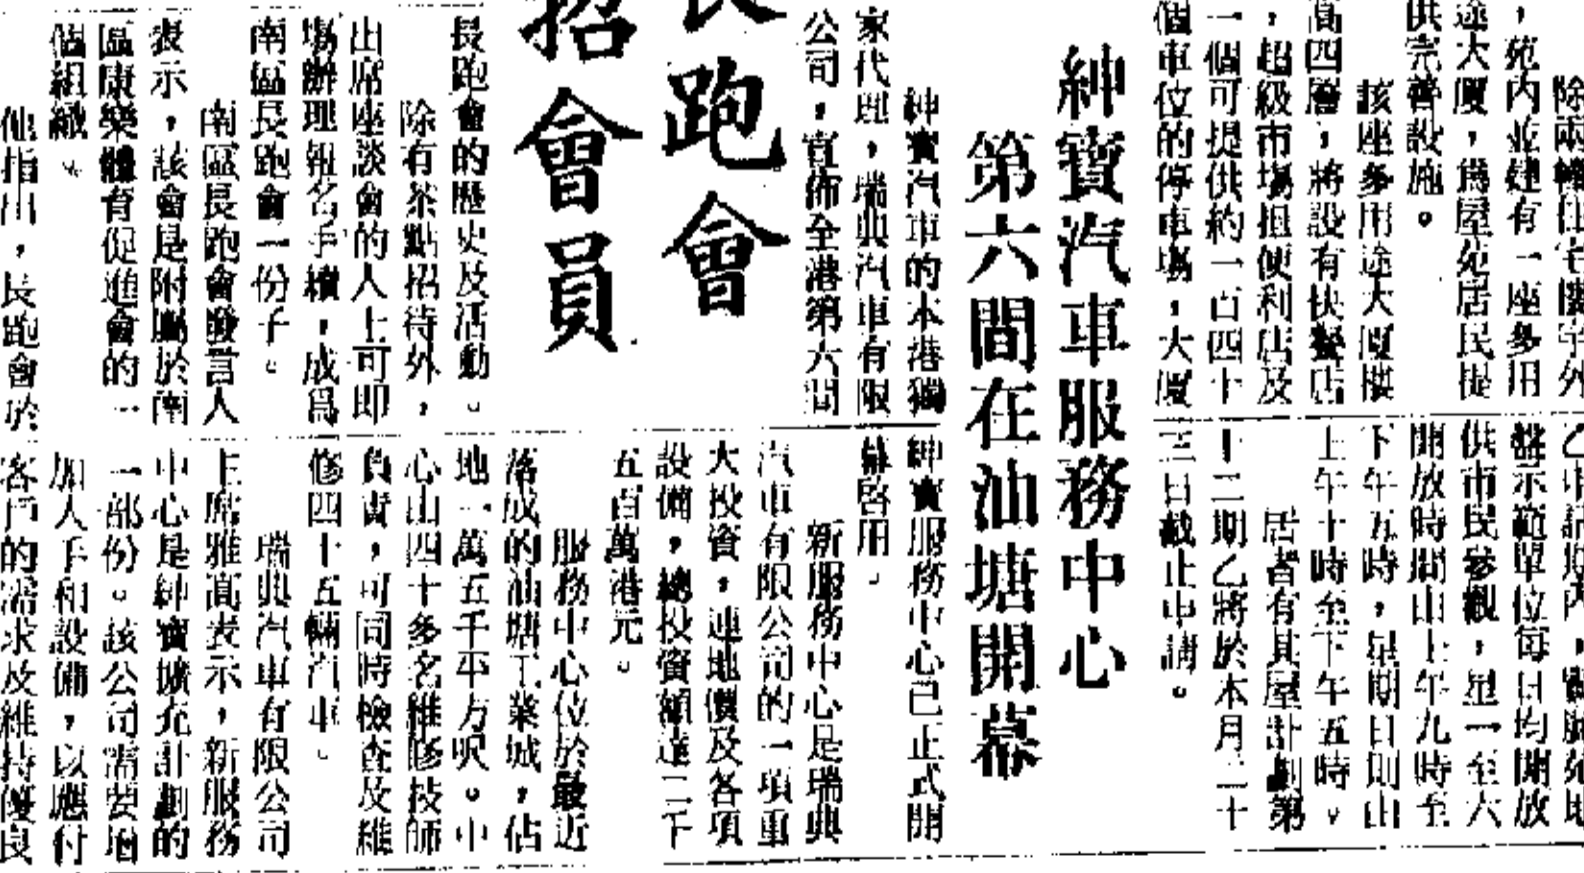 除兩幢住宅樓宇外
，苑內並建有一座多用
途大廈，爲屋苑居民提
供完善設施。
該座多用途大廈樓
高四層，將設有快餐店
，超級市場担便利店及
一個可提供約一百四十
個車位的停車場，大廈
盤示範單位每日均開放
供市民參觀，星一至六
開放時間由上午九時至
下午五時，星期日則由
上午十時至下午五時。
居者有其屋計劃第
十二期乙將於本月二十
三日截止申請。
紳寶汽車服務中心
第六間在油塘開幕
紳寶汽車的本港獨
家代理，瑞典汽車有限
公司，宣佈全港第六間
紳寶服務中心已正式開
幕啓用。
新服務中心是瑞典
汽車有限公司的一項重
大投資，連地價及各項
設備，總投資額達二千
五百萬港元。
服務中心位於最近
落成的油塘工業城，佔
地一萬五千平方呎。中
心由四十多名維修技師
負責，可同時檢查及維
修四十五輛汽車。
瑞典汽車有限公司
主席雅高表示，新服務
中心是紳寶擴充計劃的
一部份。該公司需要增
加人手和設備，以應付
客戶的需求及維持優良
長跑會
招會員
長跑會的歷史及活動。
除有茶點招待外，
出席座談會的人士可即
場辦理報名手續，成爲
南區長跑會一份子。
南區長跑會發言人
表示，該會是附屬於南
區康樂體育促進會的一
個組織。
他指出，長跑會於